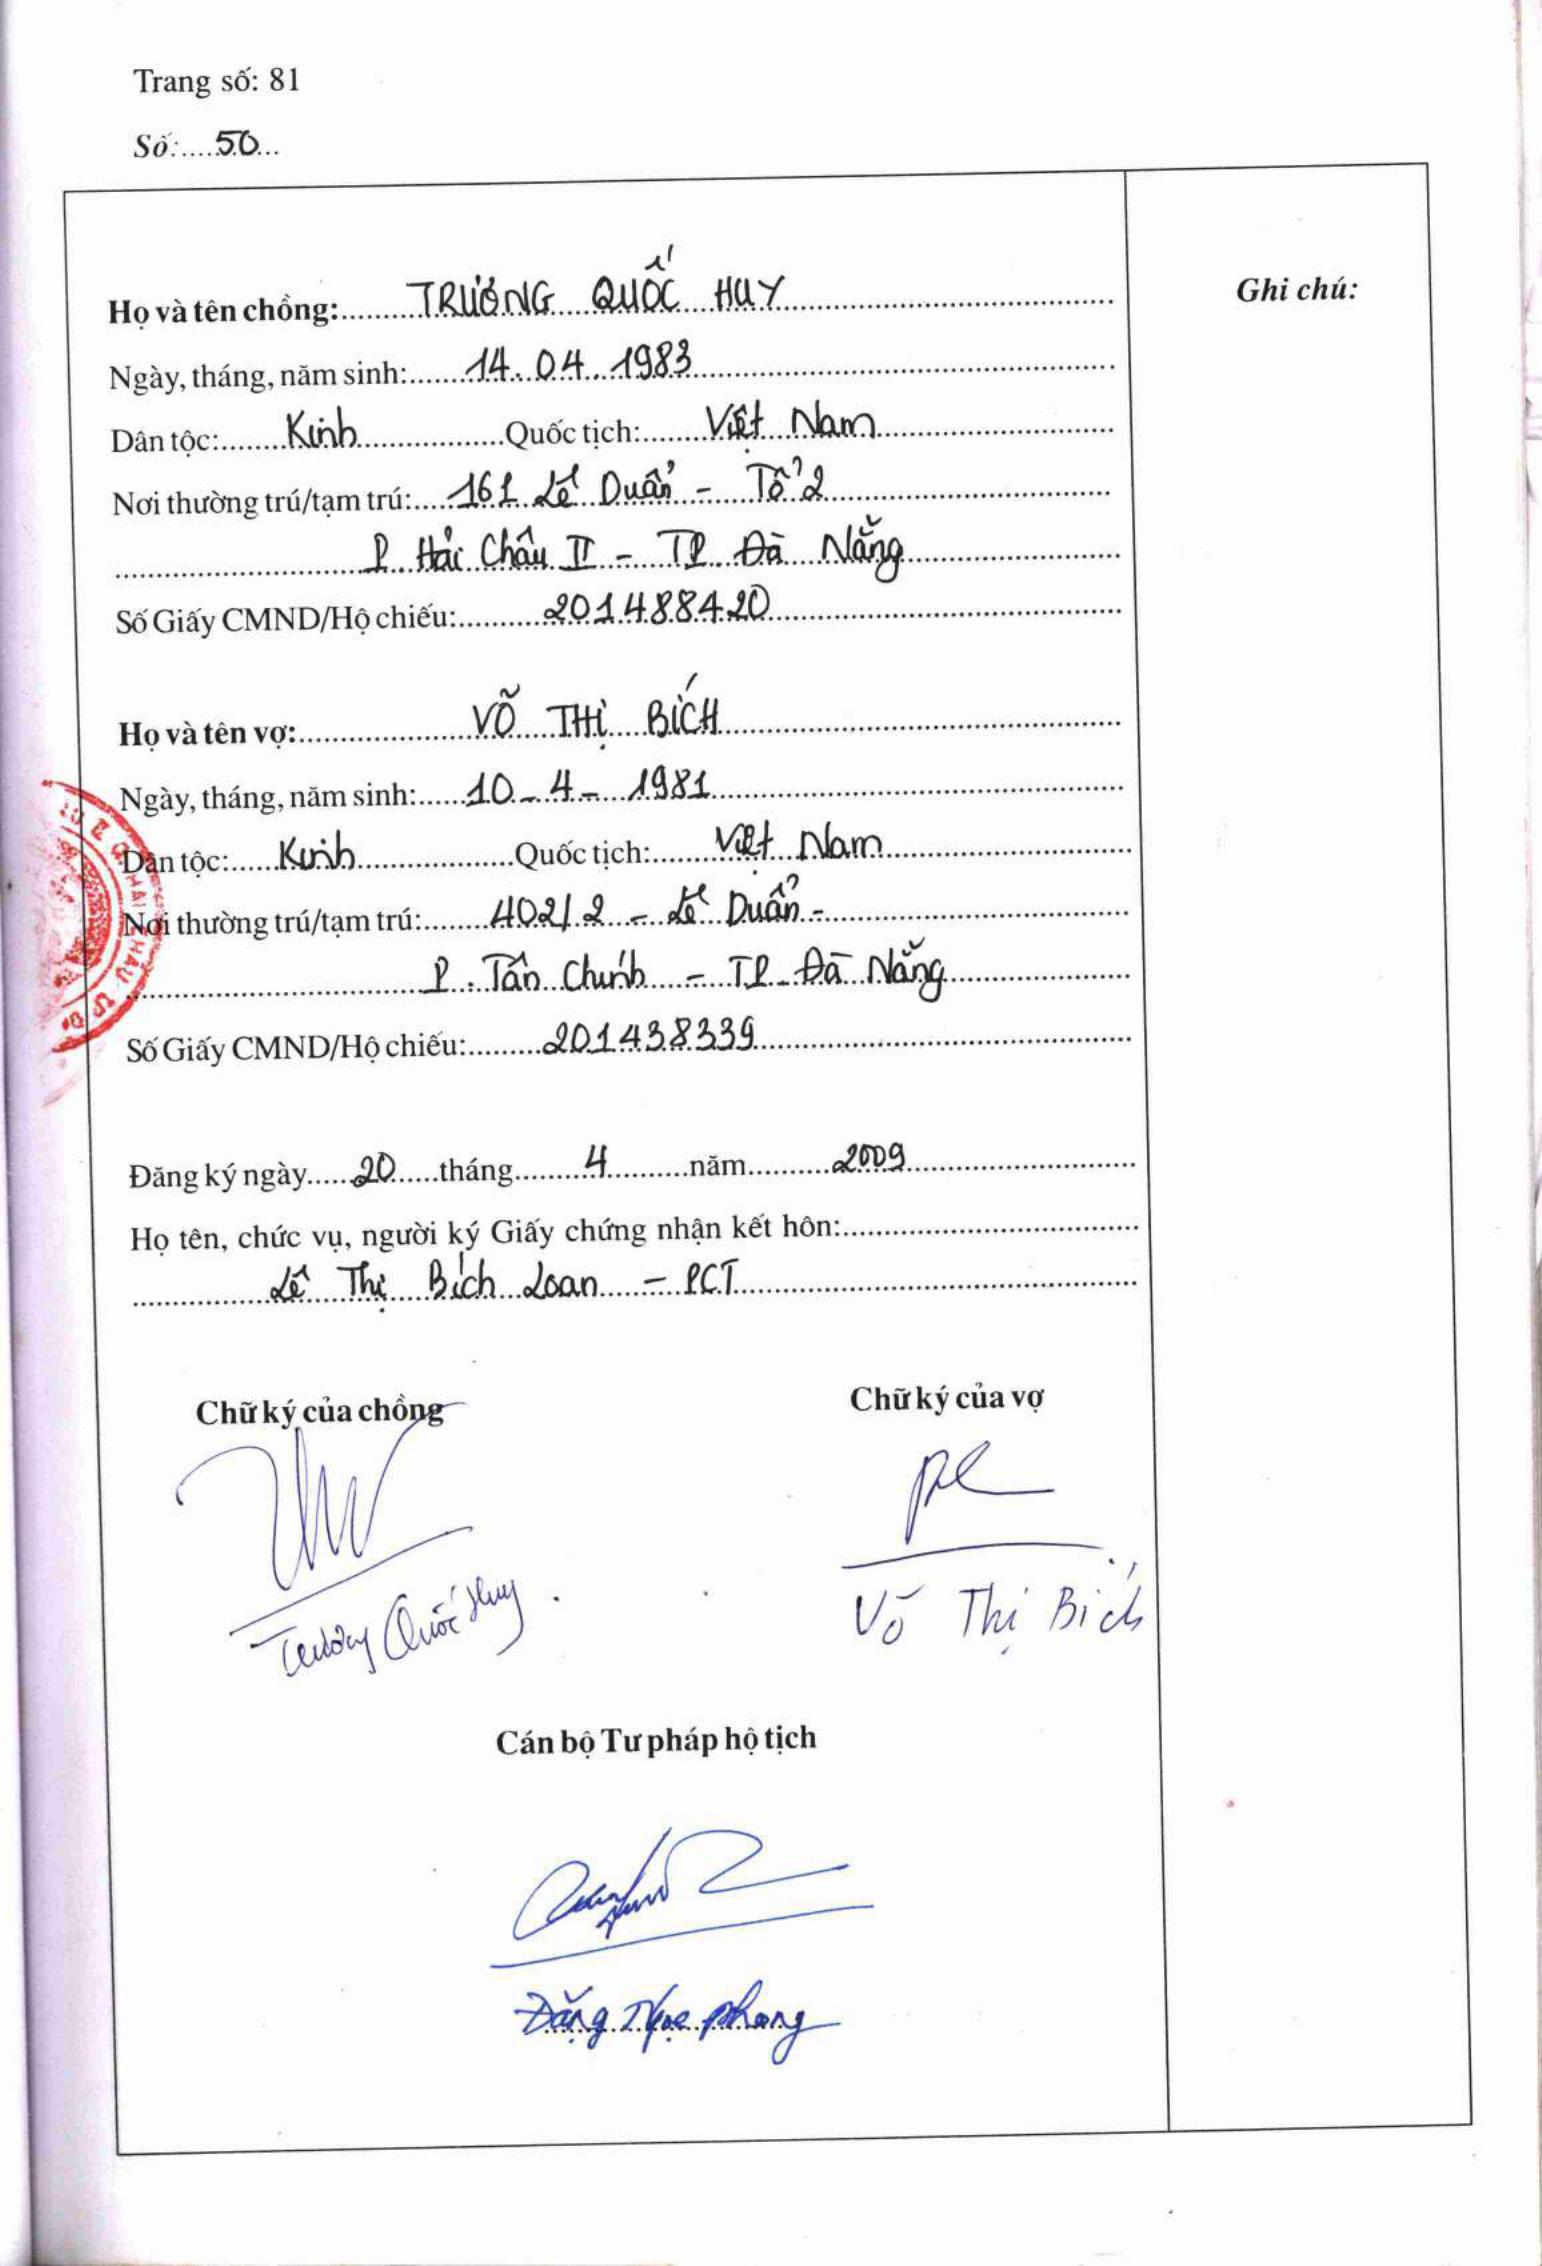 Trang số: 81
Số:....50...
Họ và tên chồng: TRƯƠNG QUỐC HUY
Ghi chú:
Ngày, tháng, năm sinh: 14.04.1983
Dân tộc: Kinh Quốc tịch: Việt Nam
Nơi thường trú/tạm trú: 161 Lê Duẩn - Tổ 2
P. Hải Châu II - TP. Đà Nẵng
Số Giấy CMND/Hộ chiếu: 201488420
Họ và tên vợ: VÕ THỊ BÍCH
Ngày, tháng, năm sinh: 10-4-1981
Dân tộc: Kinh Quốc tịch: Việt Nam
Nơi thường trú/tạm trú: 402/2 - Lê Duẩn -
P. Tân Chính - TP. Đà Nẵng
Số Giấy CMND/Hộ chiếu: 201438339
Đăng ký ngày 20 tháng 4 năm 2009
Họ tên, chức vụ, người ký Giấy chứng nhận kết hôn:
Lê Thị Bích Loan - PCT
Chữ ký của chồng Chữ ký của vợ
Trương Quốc Huy Võ Thị Bích
Cán bộ Tư pháp hộ tịch
Đặng Ngọc Phong